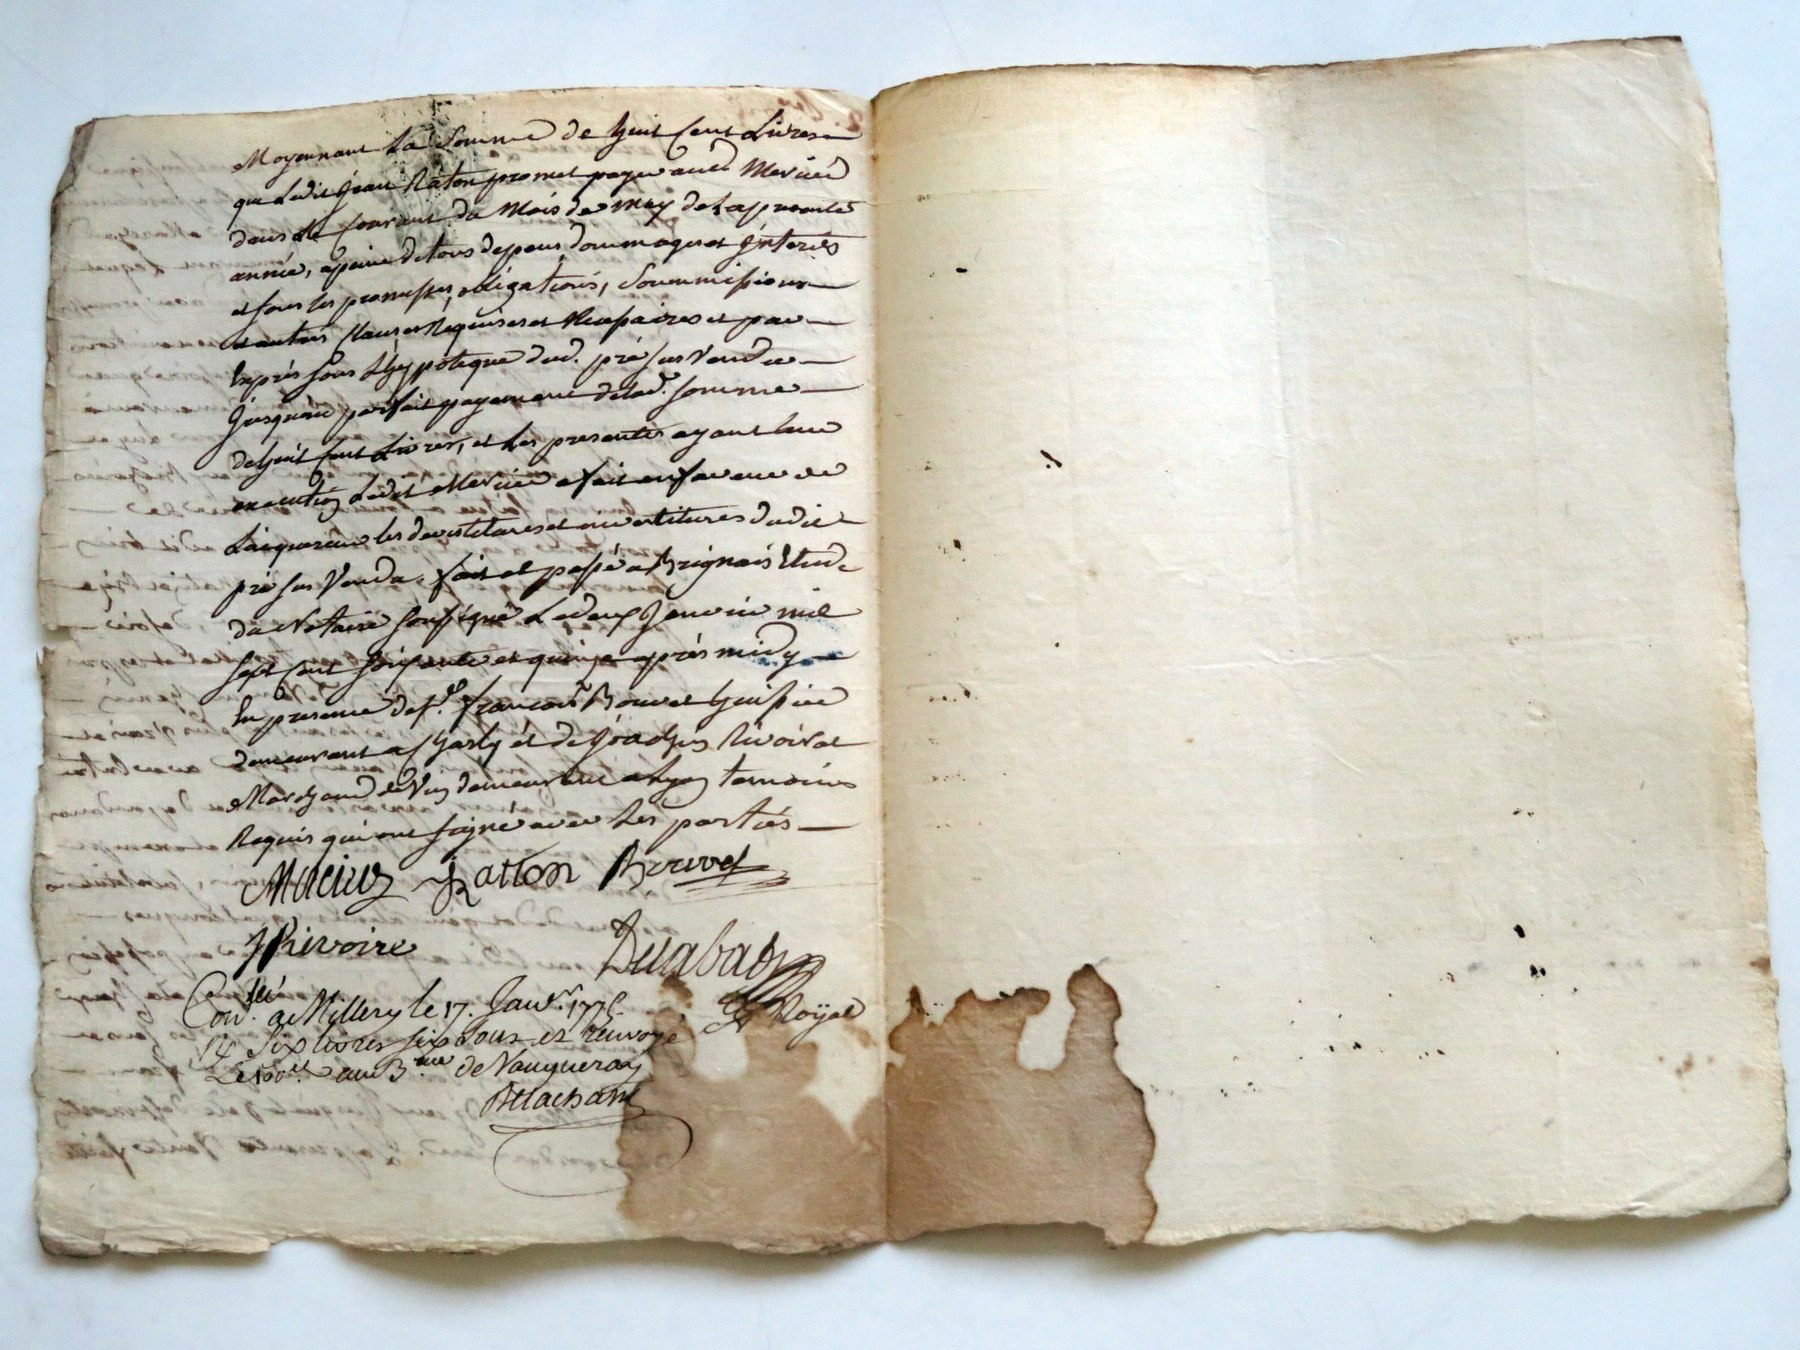 Moyennant La Somme de huit Cent Livres
que Ledit Jean Raton promet payer aud. Mercier
dans le Courant du Mois de may de La presente
année, apeine de tous depens, dommages et Jnterès
et sous les promesses, obligations, Soummissions
et autres Clauses Requises et Necessaires et par
Exprès sous L'hypoteque dud. pré sus Vendu
Jusqu'au parfait payement de lad.e somme
de huit Cent Livres, et les presentes ayant leur
execution Ledit Mercier a fait en faveur de
L'acquereur les devestitures et investitures dudit
pré sus Vendu. fait et passé a Brignais Etude
du Notaire soussigné Le deux Janvier mil
sept Cent soixante et quinze après midy
En presence de s.r françois Bouvet huissier
demeurant a Charly et de Rivoire
Marchand de Vin demeurant a Lyon temoins
Requis qui ont signé avec Les parties
Mercier Ratton Bouvet
J Rivoire Durabad
Royal
Con.llé a Millery le 17. Janv.r 1775.
14 Six livres six sous et renvoyé
Le 100.e au B.eau de Vaugneray